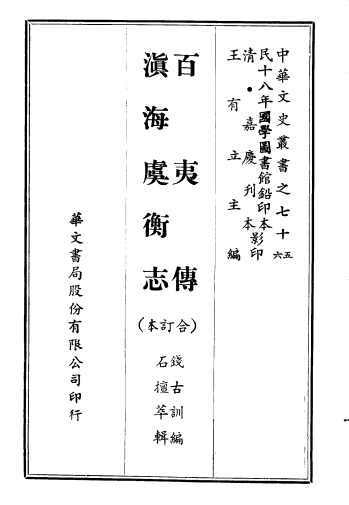 中華文史叢書之七十五六
民十八年國學圖書館鉛印本影印
清·嘉慶刊本
王有立主編
百夷傳
滇海虞衡志
(合訂本)
錢古訓編
石檀萃輯
華文書局股份有限公司印行